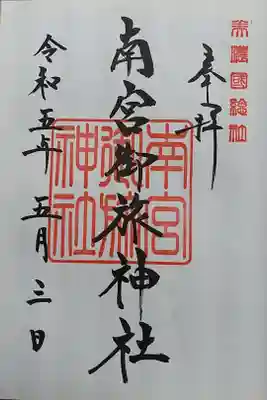 美濃國総社
奉拝
南宮御旅神社
南宮
御旅
神社
令和五年五月三日